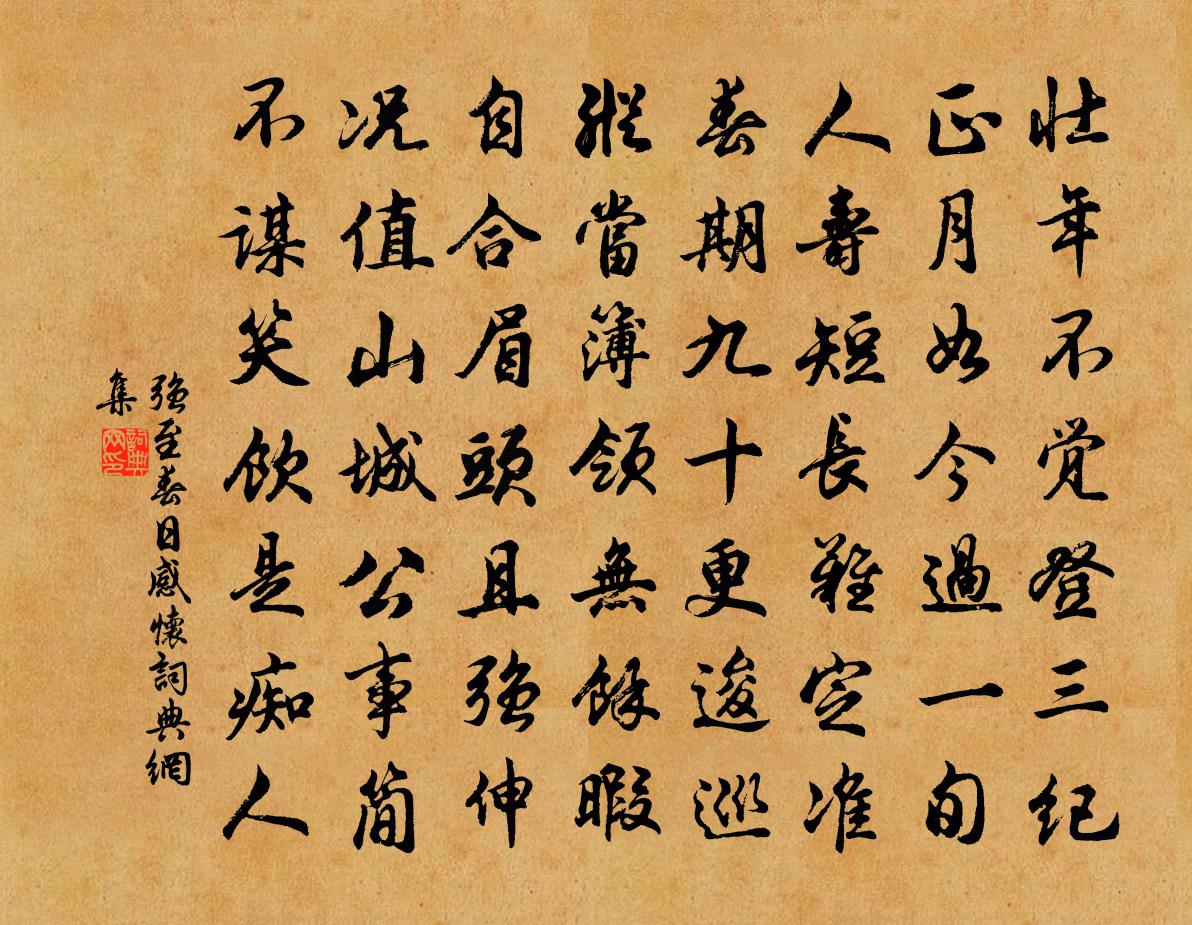 壮年不觉登三纪
正月如今過一旬
人壽短長難定准
春期九十更逡巡
縱當簿領無餘暇
自合眉頭且强伸
况值山城公事简
不謀笑飲是痴人
强至春日感懷詞典網
集
詞典
网印